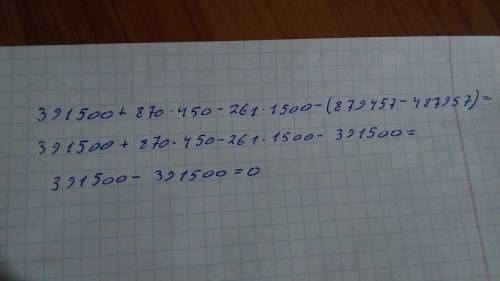 391500 + 870 · 450 - 261 · 1500 - (879457 - 487957) =
391500 + 870 · 450 - 261 · 1500 - 391500 =
391500 - 391500 = 0